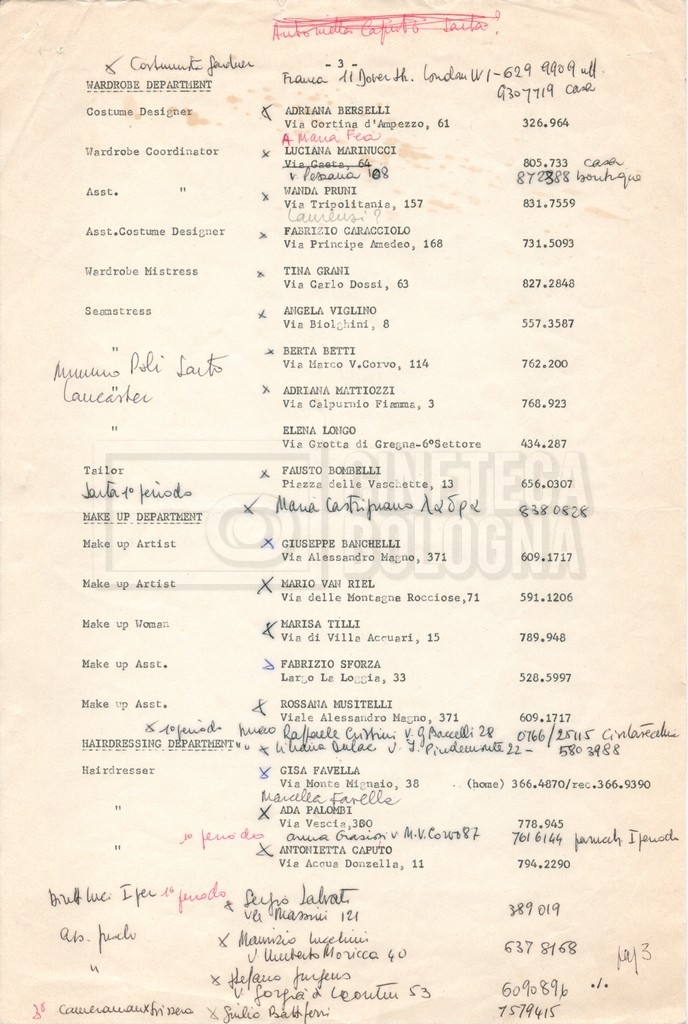 Antonietta Caputo Sarta?
- 3 -
x Costumista Gardner Franca 11 Dover St. London W1-629 9909 uff
9307719 casa
WARDROBE DEPARTMENT
Costume Designer x ADRIANA BERSELLI
Via Cortina d'Ampezzo, 61 326.964
A Maria Fea
Wardrobe Coordinator x LUCIANA MARINUCCI
Via Gaeta, 64 805.733 casa
V Pessana 108 872388 boutique
Asst. " x WANDA PRUNI
Via Tripolitania, 157 831.7559
Asst.Costume Designer x FABRIZIO CARACCIOLO
Via Principe Amedeo, 168 731.5093
Wardrobe Mistress x TINA GRANI
Via Carlo Dossi, 63 827.2848
Seamstress x ANGELA VIGLINO
Via Biolghini, 8 557.3587
" x BERTA BETTI
Via Marco V.Corvo, 114 762.200
Mimmo Poli Sarto
Lancaster
x ADRIANA MATTIOZZI
Via Calpurnio Fiamma, 3 768.923
" ELENA LONGO
Via Grotta di Gregna-6°Settore 434.287
Tailor x FAUSTO BOMBELLI
Piazza delle Vaschette, 13 656.0307
Sarta 1° periodo x Maria Castrignano 8380828
MAKE UP DEPARTMENT
Make up Artist x GIUSEPPE BANCHELLI
Via Alessandro Magno, 371 609.1717
Make up Artist x MARIO VAN RIEL
Via delle Montagne Rocciose,71 591.1206
Make up Woman x MARISA TILLI
Via di Villa Accuari, 15 789.948
Make up Asst. x FABRIZIO SFORZA
Largo La Loggia, 33 528.5997
Make up Asst. x ROSSANA MUSITELLI
Viale Alessandro Magno, 371 609.1717
x 1° periodo trucco Raffaele Cristini V. G Baccelli 28 0766/25115 Civitavecchia
HAIRDRESSING DEPARTMENT " " x Liliana Dulac V. I. Pindemonte 22 - 5803988
Hairdresser x GISA FAVELLA
Via Monte Mignaio, 38 ..(home) 366.4870/rec.366.9390
Marcella Favella
" x ADA PALOMBI
Via Vescia,380 778.945
1° periodo Anna Graziosi V M.V. Corvo 87 7616144 I periodo
" x ANTONIETTA CAPUTO
Via Acqua Donzella, 11 794.2290
1° periodo x Sergio Salvati
Via Massini 121 389019
x Maurizio Lucchini
V Umberto Moricca 40 6378168
pag 3
" x Stefano
V. Gorgia di Leontini 53 6090896 ./.
3° x Giulio Battiferri 7579415
CINETECA
BOLOGNA